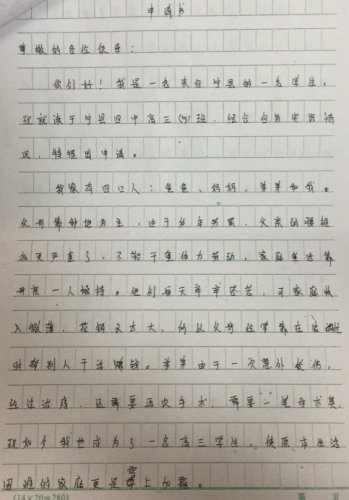 申请书
尊敬的各位领导：
你们好！我是一名来自宁县的一名学生。
现就读于宁县四中高三（5）班，结合自身实际情
况，特提出申请。
我家有四口人：爸爸、妈妈、弟弟和我。
父母靠种地为主，由于多年劳累，父亲的腰椎
病更严重了，不能干重体力劳动，家庭生活靠
母亲一人维持。他们每天辛辛苦苦，可家庭收
入微薄，花销又太大，所以父母经常靠在
帮别人干活赚钱。弟弟由于一次意外受伤，
经过治疗，还需要再次手术，需要一笔手术费，
现如今我也成为了一名高三学生，使原本生活
困难的家庭更是雪上加霜。
(14×20=280)